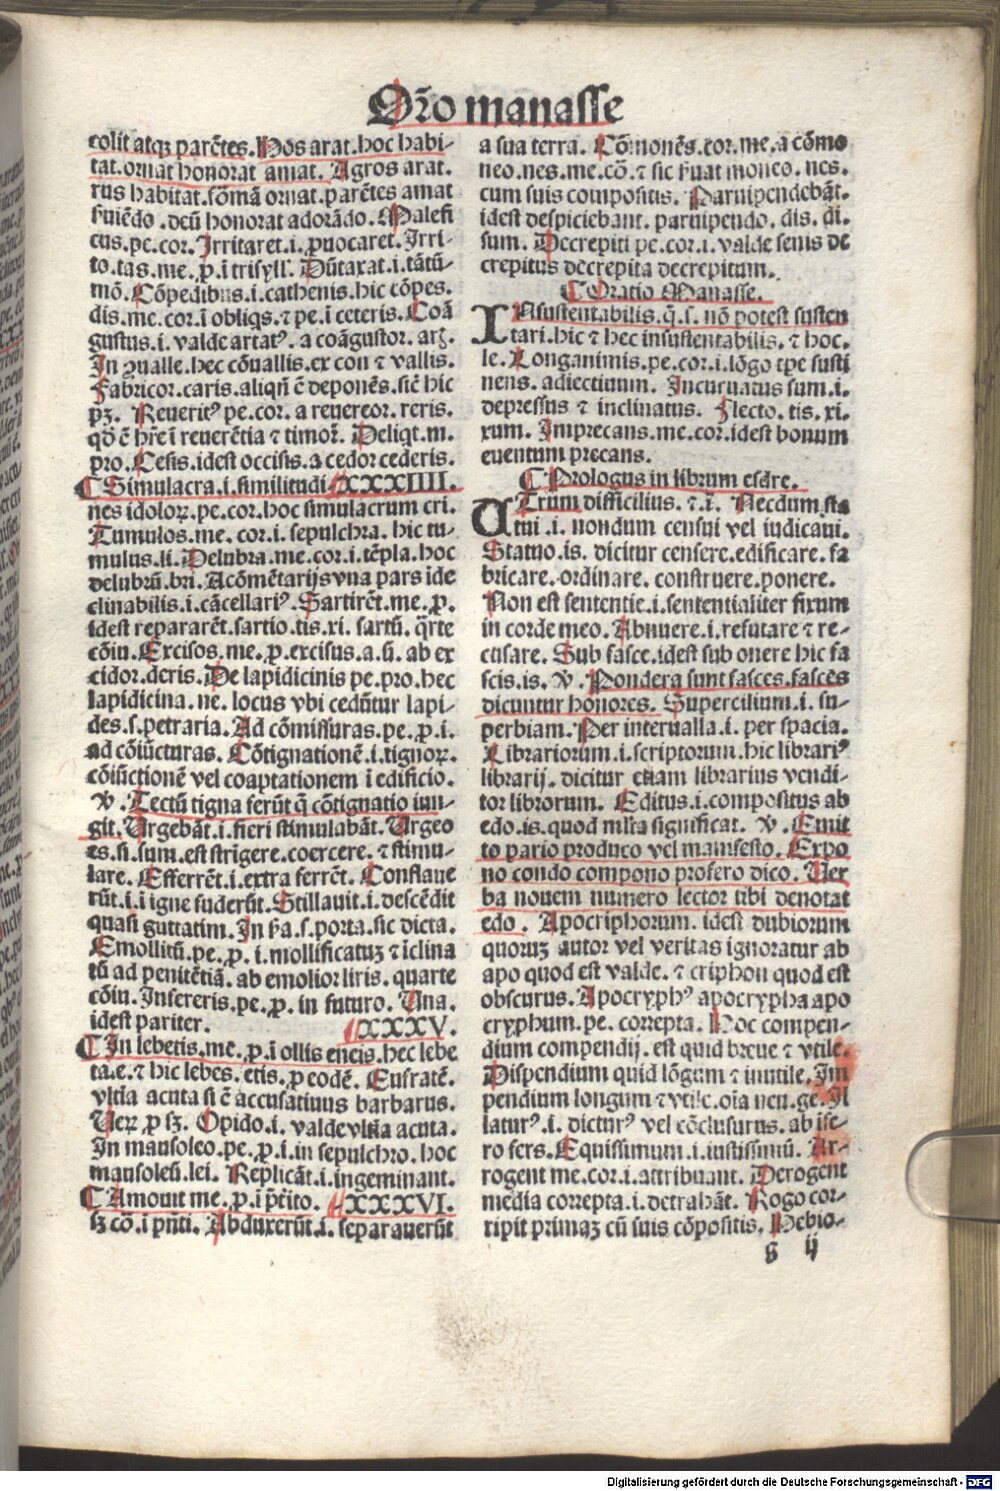 Oro manasse
colit atqꝫ parẽtes. Hos arat. hoc habi-
tat. ornat honorat amat. Agros arat.
rus habitat. fõmã ornat. parẽtes amat
ẜuiẽdo. deũ honorat adorãdo. Malefi
cus. pe. cor. Irritaret. i. ꝓuocaret. Irri-
to. tas. me. ꝓ. i trisyll'. Dũtaxat. i. tãtũ-
mõ. Cõpedibus. i. cathenis. hic cõpes.
dis. me. cor. ĩ obliqs. ⁊ pe. ĩ ceteris. Coã
gustus. i. valde artatꝰ. a coãgustor. arꝭ.
In ꝯualle. hec cõuallis. ex con ⁊ vallis.
Fabricor. caris. aliqñ ẽ deponẽs. sic̃ hic
pꝫ. Reueritꝰ pe. cor. a reuereor. reris.
qď ẽ hr̃e ĩ reuerẽtia ⁊ timoꝛ̃. Deliqt. m.
pro. Cesis. idest occisis. a cedor cederis.
Simulacra. i. similitudi XXXIIII.
nes idoloꝝ. pe. cor. hoc simulacrum cri.
Tumulos. me. cor. i sepulchra. hic tu-
mulus. li. Delubra. me. cor. i. tẽpla. hoc
delubrũ. bri. A cõmẽtarijs vna pars ide
clinabilis. i. cãcellariꝰ. Sartirẽt. me. ꝓ.
idest repararẽt. sartio. tis. xi. sartũ. q̃rte
cõiu. Excisos. me. ꝓ. excisus. a. ũ. ab ex
cidor. deris. De lapidicinis pe. pro. hec
lapidicina. ne. locus vbi cedũtur lapi-
des. s. petraria. Ad cõmissuras. pe. ꝓ. i.
ad cõiũcturas. Cõtignationẽ. i. tignoꝝ.
cõiũctionẽ vel coaptationem ĩ edificio.
ꝟ. Tectũ tigna ferũt q̃ cõtignatio iun-
git. Urgebãt. i. fieri stimulabãt. Urgeo
es. si. sum. est strigere. coercere. ⁊ stimu-
lare. Efferrẽt. i. extra ferrẽt. Conflaue
rũt. i. i igne fuderũt. Stillauit. i. descẽdit
quasi guttatim. In ẜa. s. porta. sic dicta.
Emollitũ. pe. ꝓ. i. mollificatuꝫ ⁊ ĩclina
tũ ad penitẽtiã. ab emolior liris. quarte
cõiu. Insereris. pe. ꝓ. in futuro. Una.
idest pariter. XXXV.
In lebetis. me. ꝓ. i ollis eneis. hec lebe
ta. e. ⁊ hic lebes. etis. ꝓ eodẽ. Eufratẽ.
vltĩa acuta si ẽ accusatiuus barbarus.
Ueꝝ ꝓ sꝫ. Opido. i. valde vltĩa acuta.
In mausoleo. pe. ꝓ. i. in sepulchro. hoc
mausoleũ. lei. Replicãt. i. ingeminant.
Amouit me. ꝓ. ĩ p̃tito. XXXVI.
sꝫ cõ. i pñti. Abduxerũt. i. separauerũt
a sua terra. Cõmonẽs. cor. me. a cõmo
neo. nes. me. cõ. ⁊ sic ẜuat moneo. nes.
cum suis compositis. Paruipendebãt.
idest despiciebant. paruipendo. dis. di.
sum. Decrepiti pe. cor. i. valde senis de
crepitus decrepita decrepitum.
Oratio Manasse.
INsustentabilis. q̃. s. nõ potest susten
tari. hic ⁊ hec insustentabilis. ⁊ hoc.
le. Longanimis. pe. cor. i. lõgo tp̃e susti
nens. adiectiuum. Incuruatus sum. i.
depressus ⁊ inclinatus. Flecto. tis. xi.
xum. Imprecans. me. cor. idest bonum
euentum precans.
Prologus in librum esdre.
UTrum difficilius. ⁊. ĩ. Necdum sta
tui. i. nondum censui vel iudicaui.
Statuo. is. dicitur censere. edificare. fa
bricare. ordinare. construere. ponere.
Non est sententie. i. sententialiter fixum
in corde meo. Abnuere. i. refutare ⁊ re-
cusare. Sub fasce. idest sub onere hic fa
scis. is. ꝟ. Pondera sunt fasces. fasces
dicuntur honores. Supercilium. i. su-
perbiam. Per interualla. i. per spacia.
Librariorum. i. scriptorum. hic librariꝰ
librarij. dicitur etiam librarius vendi-
tor librorum. Editus. i. compositus ab
edo. is. quod mĩta significat. ꝟ. Emit
to pario produco vel manifesto. Expo
no condo compono profero dico. Uer
ba nouem numero lector tibi denotat
edo. Apocriphorum. idest dubiorum
quoruꝫ autor vel veritas ignoratur ab
apo quod est valde. ⁊ criphon quod est
obscurus. Apocryphꝰ apocrypha apo
cryphum. pe. correpta. Hoc compen-
dium compendij. est quid breue ⁊ vtile.
Dispendium quid lõgum ⁊ inutile. Im
pendium longum ⁊ vtile. oĩa neu. ge. Il
laturꝰ. i. dicturꝰ vel cõclusurus. ab ife-
ro fers. Equissimum. i. iustissimũ. Ar-
rogent me. cor. i. attribuant. Derogent
media correpta. i. detrahãt. Rogo cor-
ripit primaꝫ cũ suis cõpositis. Hebio-
g ij
Digitalisierung gefördert durch die Deutsche Forschungsgemeinschaft - DFG